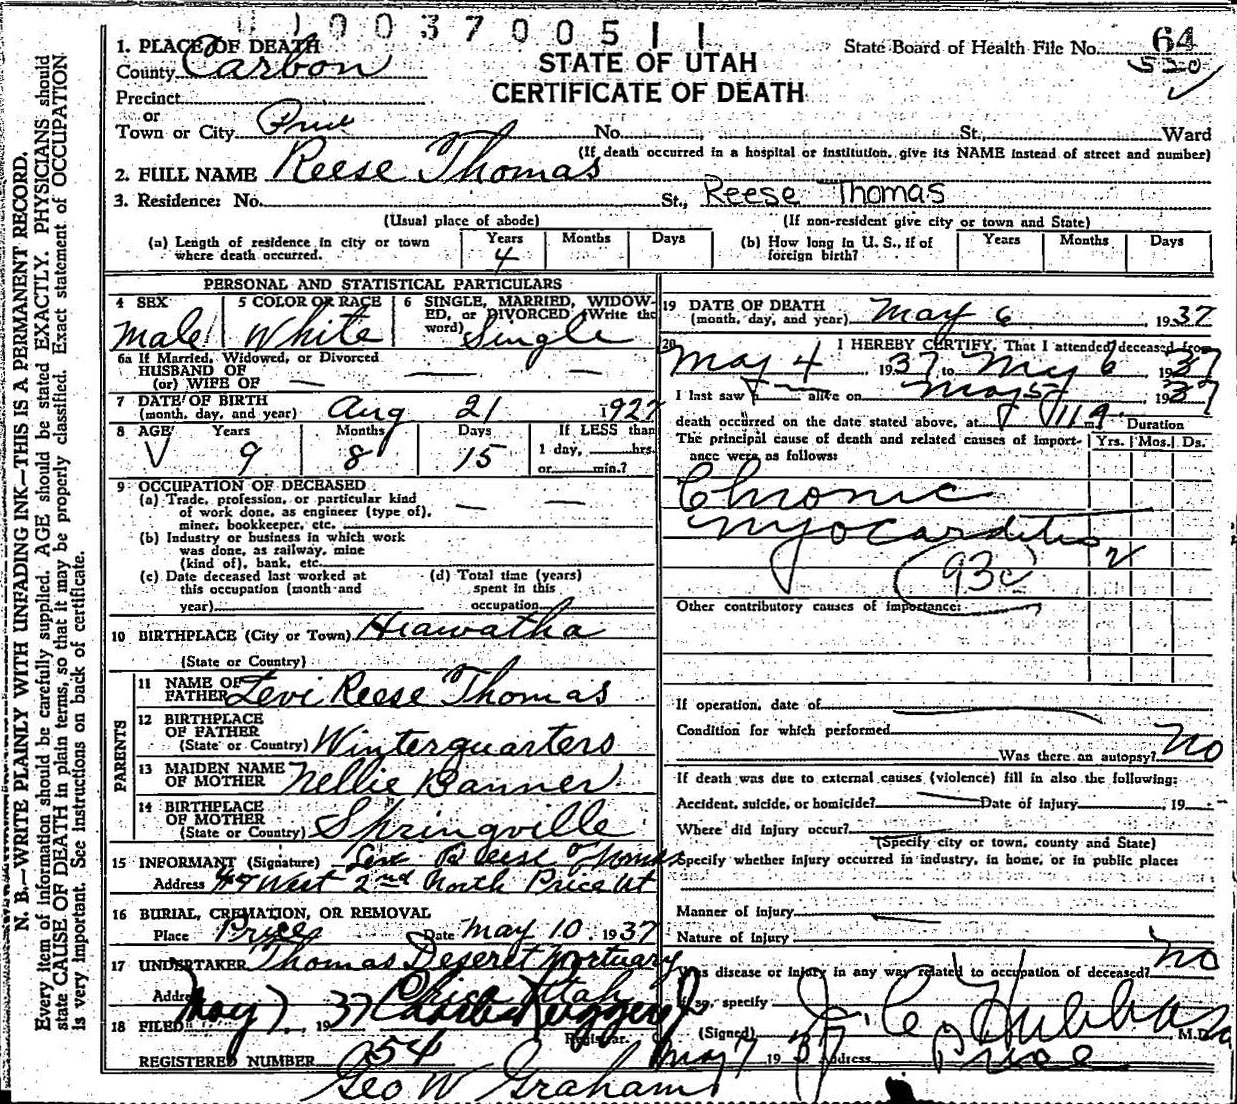 0 1 0 0 3 7 0 0 5 1 1
1. PLACE OF DEATH
County Carbon
STATE OF UTAH
CERTIFICATE OF DEATH
State Board of Health File No. 64
520
Precinct
or
Town or City Price No. St., Ward
(If death occurred in a hospital or institution, give its NAME instead of street and number)
2. FULL NAME Reese Thomas
3. Residence: No. St., Reese Thomas
(Usual place of abode) (If non-resident give city or town and State)
(a) Length of residence in city or town where death occurred. Years 4 Months Days
(b) How long in U. S., if of foreign birth? Years Months Days
PERSONAL AND STATISTICAL PARTICULARS
4 SEX Male
5 COLOR OR RACE White
6 SINGLE, MARRIED, WIDOWED, or DIVORCED (Write the word) Single
6a If Married, Widowed, or Divorced
HUSBAND OF
(or) WIFE OF —
7 DATE OF BIRTH
(month, day, and year) Aug 21 1927
8 AGE Years 9 Months 8 Days 15
If LESS than
1 day, hrs.
or min.?
9 OCCUPATION OF DECEASED
(a) Trade, profession, or particular kind
of work done, as engineer (type of),
miner, bookkeeper, etc.
(b) Industry or business in which work
was done, as railway, mine
(kind of), bank, etc.
(c) Date deceased last worked at
this occupation (month and
year)
(d) Total time (years)
spent in this
occupation
10 BIRTHPLACE (City or Town) Hiawatha
(State or Country)
PARENTS
11 NAME OF
FATHER Levi Reese Thomas
12 BIRTHPLACE
OF FATHER
(State or Country) Winterquarters
13 MAIDEN NAME
OF MOTHER Nellie Banner
14 BIRTHPLACE
OF MOTHER
(State or Country) Springville
15 INFORMANT (Signature) Levi Reese Thomas
Address West 2nd North Price Ut
16 BURIAL, CREMATION, OR REMOVAL
Place Price Date May 10, 1937
17 UNDERTAKER Thomas Deseret Mortuary
Address Price Utah
18 FILED May 7, 1937
Registrar.
REGISTERED NUMBER 54
Geo W Graham
19 DATE OF DEATH
(month, day, and year) May 6, 1937
20 I HEREBY CERTIFY, That I attended deceased from
May 4, 1937 to May 6 1937
I last saw h alive on May 5, 1937
death occurred on the date stated above, at 11 a. m.
The principal cause of death and related causes of importance were as follows:
Duration
Yrs. Mos. Ds.
Chronic
myocarditis
93c
Other contributory causes of importance:
If operation, date of
Condition for which performed
Was there an autopsy? No
If death was due to external causes (violence) fill in also the following:
Accident, suicide, or homicide? Date of injury , 19
Where did injury occur?
(Specify city or town, county and State)
Specify whether injury occurred in industry, in home, or in public place:
Manner of injury
Nature of injury
Was disease or injury in any way related to occupation of deceased? No
If so, specify
(Signed) J. C. Hubbard M.D.
May 7 1937 Address Price
N. B.—WRITE PLAINLY WITH UNFADING INK—THIS IS A PERMANENT RECORD.
Every item of information should be carefully supplied. AGE should be stated EXACTLY. PHYSICIANS should
state CAUSE OF DEATH in plain terms, so that it may be properly classified. Exact statement of OCCUPATION
is very important. See instructions on back of certificate.